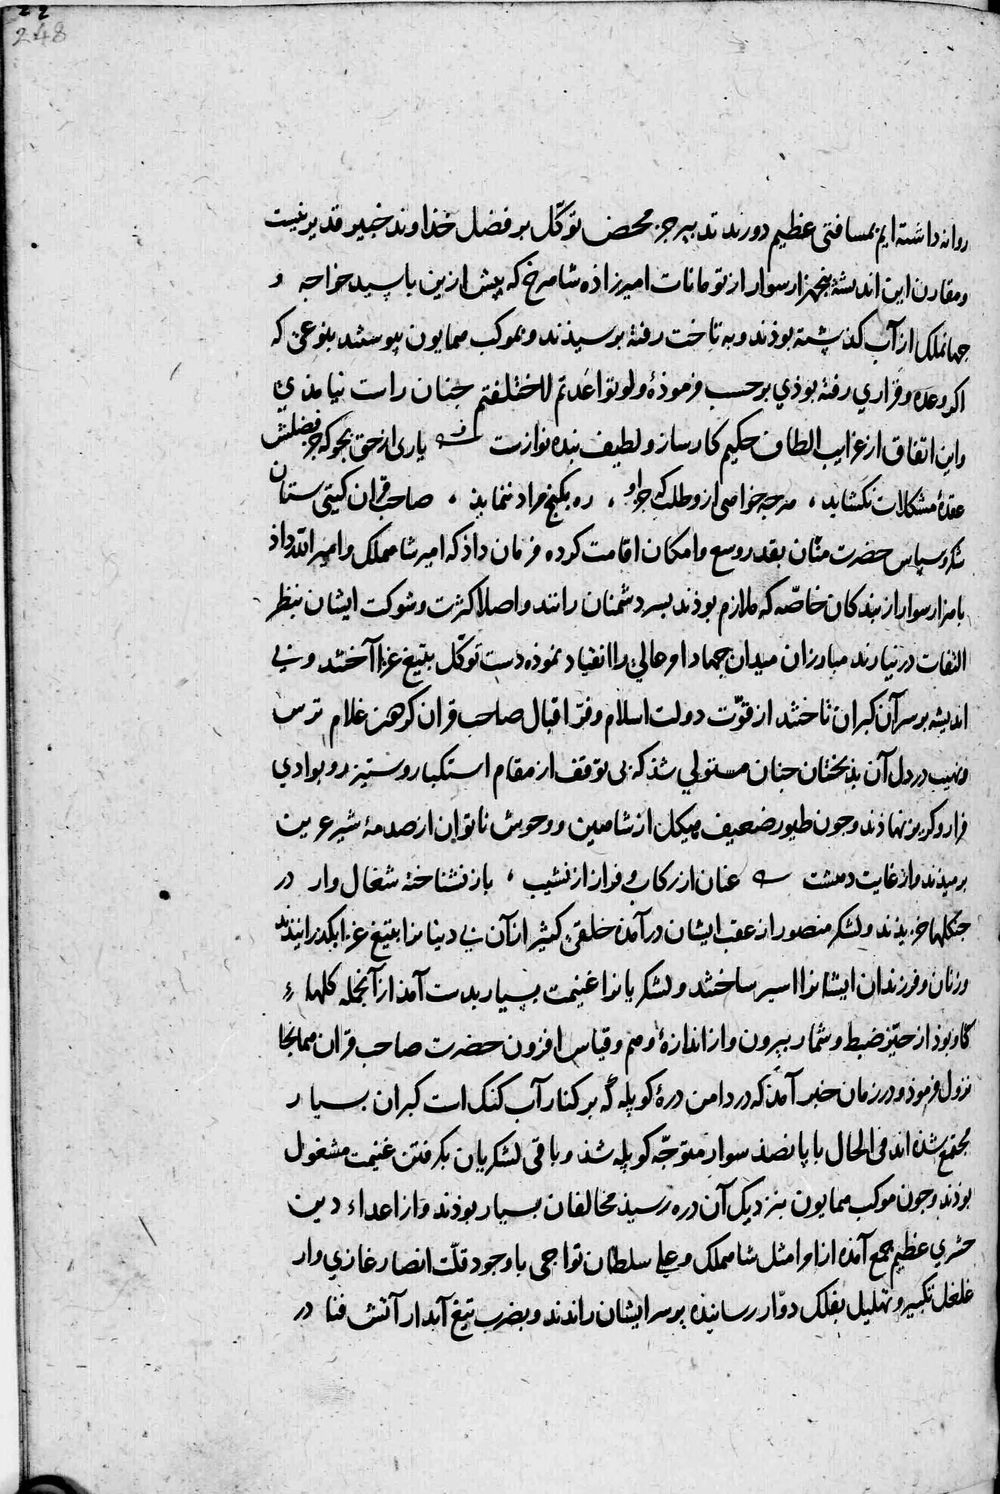 248
روانه داشته ایم بمسافتی عظیم دورند تدبیر جز محض توکّل بر فضل خذاوند خبیر قدیر نیست
ومقارن این اندیشه پنجهزار سوار از تومانات امیرزاذه شاهرخ که پیش ازین با سید خواجه و
جهانملک از آب کذشته بوذند و به تاخت رفته برسیذند و بموکب همایون پیوستند بنوعی که
اکر وعده و قراری رفته بوذی برحسب فرموذۀ ولو تواعدتم لاختلفتم جنان راست نیامذی
واین اتفاق از غرایب الطاف حکیم کارساز و لطیف بنده نوازست یاری از حق بجو که جز فضلش
عقدۀ مشکلات نکشاید ، هرچه خواهی ازو طلب که جز او ، ره بکنج مراد ننماید ، صاحب قران کیتی ستان
شکر و سپاس حضرت منّان بقدر وسع وامکان اقامت کرده فرمان داذ که امیر شاهملک وامیر الله داذ
با هزار سوار از بندکان خاصّه که ملازم بوذند بسر دشمنان رانند و اصلا کثرت و شوکت ایشان بنظر
التفات در نیارند مبارزان میدان جهاد امر عالی را انقیاد نموذه دست توکّل بتیغ غزا آختند و بی
اندیشه بر سر آن کبران تاختند از قوّت دولت اسلام و فرّ اقبال صاحب قران کوهش غلام ترس
ونهیب در دل آن بذبختان جنان مستولی شذ که بی توقف از مقام استکبار و ستیز رو بوادی
فرار و کریز نهاذند وجون طیور ضعیف هیکل از شاهین و وحوش ناتوان از صدمۀ شیر عرین
برمیذند واز غایت دهشت عنان از رکاب و فراز از نشیب ، باز نشناخته شغال وار در
جنکلها خزیذند و لشکر منصور از عقب ایشان در آمده خلقی کثیر از آن بی دینانرا بتیغ غزا بکذرانیدند
وزنان و فرزندان ایشانرا اسیر ساختند و لشکریانرا غنیمت بسیار بدست آمذ از آنجمله کلهاء
کاو بوذ از حیّز ضبط و شمار بیرون واز اندازۀ وهم و قیاس افزون حضرت صاحب قران همانجا
نزول فرموذ و در زمان خبر آمذ که در دامن درۀ کوپله که بر کنار آب کنک است کبران بسیار
مجتمع شذه اند فی الحال با پانصذ سوار متوجّه کوپله شذ و باقی لشکریان بکرفتن غنیمت مشغول
بوذند وجون موکب همایون بنزدیک آن دره رسیذ مخالفان بسیار بوذند واز اعداء دین
حشری عظیم بجمع آمذه از امرا مثل شاهملک و علی سلطان تواجی با وجود قلّت انصار غازی وار
غلغل تکبیر و تهلیل بفلک دوّار رسانیذه بر سر ایشان راندند و بضرب تیغ آبدار آتش فنا در